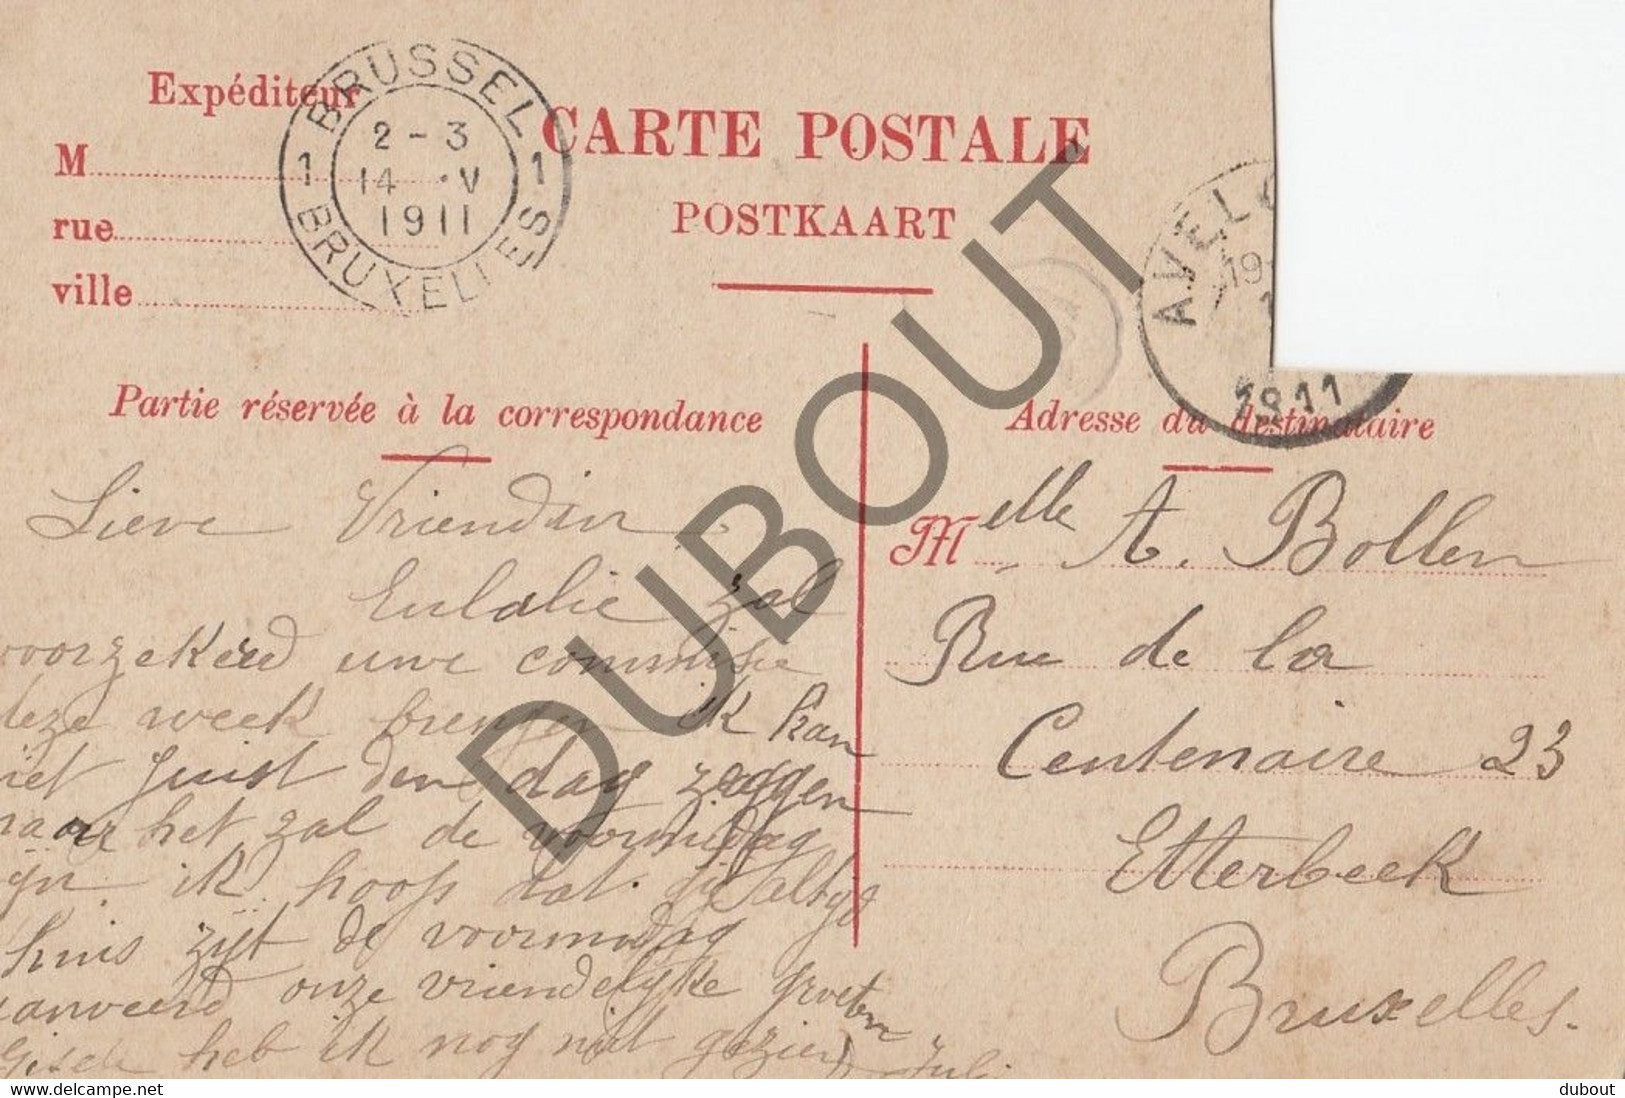 Expéditeur
M
rue
ville
BRUSSEL
1 1
2 - 3
14 · V
1911
BRUXELLES
CARTE POSTALE
POSTKAART
AVELG
19
1911
Partie réservée à la correspondance
Adresse du destinataire
Lieve Vriendin
Eulalie zal
voorzekerd uwe commisie
deze week brengen ik kan
niet juist den dag zeggen
maar het zal de voormidag
zijn. ik hoop dat gij altyd
thuis zyt de voormidag
aanveerd onze vriendelyke groeten
heb ik nog niet gezien
Melle A. Bollen
Rue de la
Centenaire 23
Etterbeek
Bruxelles.
DUBOUT
delcampe.net
dubout